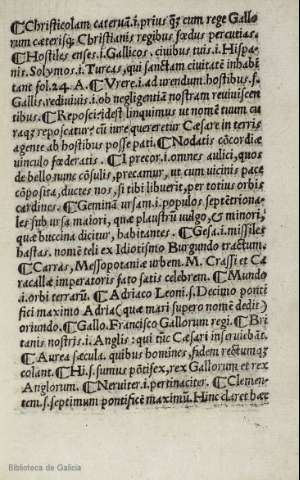 ¶Christicolam cateruā.i.prius q̃3 cum rege Gallo
rum cæterisq; Christianis regibus fœdus percutias.
¶Hostiles enses.i.Gallicos, ciuibus tuis.i.Hispa-
nis.Solymos.i.Turcas, qui sanctam ciuitatē inhabi
tant fol.24. A. ¶Vrere.i.ad urendum.hostibus.s.
Gallis.rediuiuis.i.ob negligentiā nostram reuiuiscen
tibus. ¶Reposci:idest linquimus ut nomē tuum cu
raq; reposcatur: cū iure queretur Cæsare in terris
agente ab hostibus posse pati. ¶Nodatis cōcordiæ
uinculo fœderatis. ¶I precor.i.omnes aulici, quos
de bello nunc cōsulis, precamur, ut cum uicinis pace
cōposita, ductes nos, si tibi libuerit, per totius orbis
cardines. ¶Geminā ursam.i.populos septētriona-
les sub ursa maiori, quæ plaustrū uulgo, & minori,
quæ buccina dicitur, habitantes. ¶Gesa.i.missiles
hastas. nomē teli ex Idiotismo Burgundo tractum.
¶Carras, Messopotaniæ urbem. M. Crassi et Ca
racallæ imperatoris fato satis celebrem. ¶Mundo
.i.orbi terrarū. ¶Adriaco Leoni.s.Decimo ponti
fici maximo Adria (quæ mari supero nomē dedit)
oriundo. ¶Gallo.Francisco Gallorum regi. ¶Bri
tanis nostris.i.Anglis: qui tūc Cæsari inseruibāt.
¶Aurea sæcula. quibus homines, fidem rectūmq;
colant. ¶Hi.s.sumus pōtifex, rex Gallorum et rex
Anglorum. ¶Neruiter.i.pertinaciter. ¶Clemen-
tem.s.septimum pontificē maximū. Hinc claret hæc
Biblioteca de Galicia